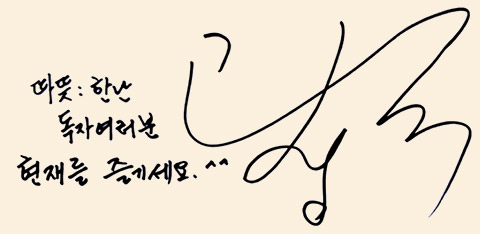 따뜻:한난
독자여러분
현재를 즐기세요.^^